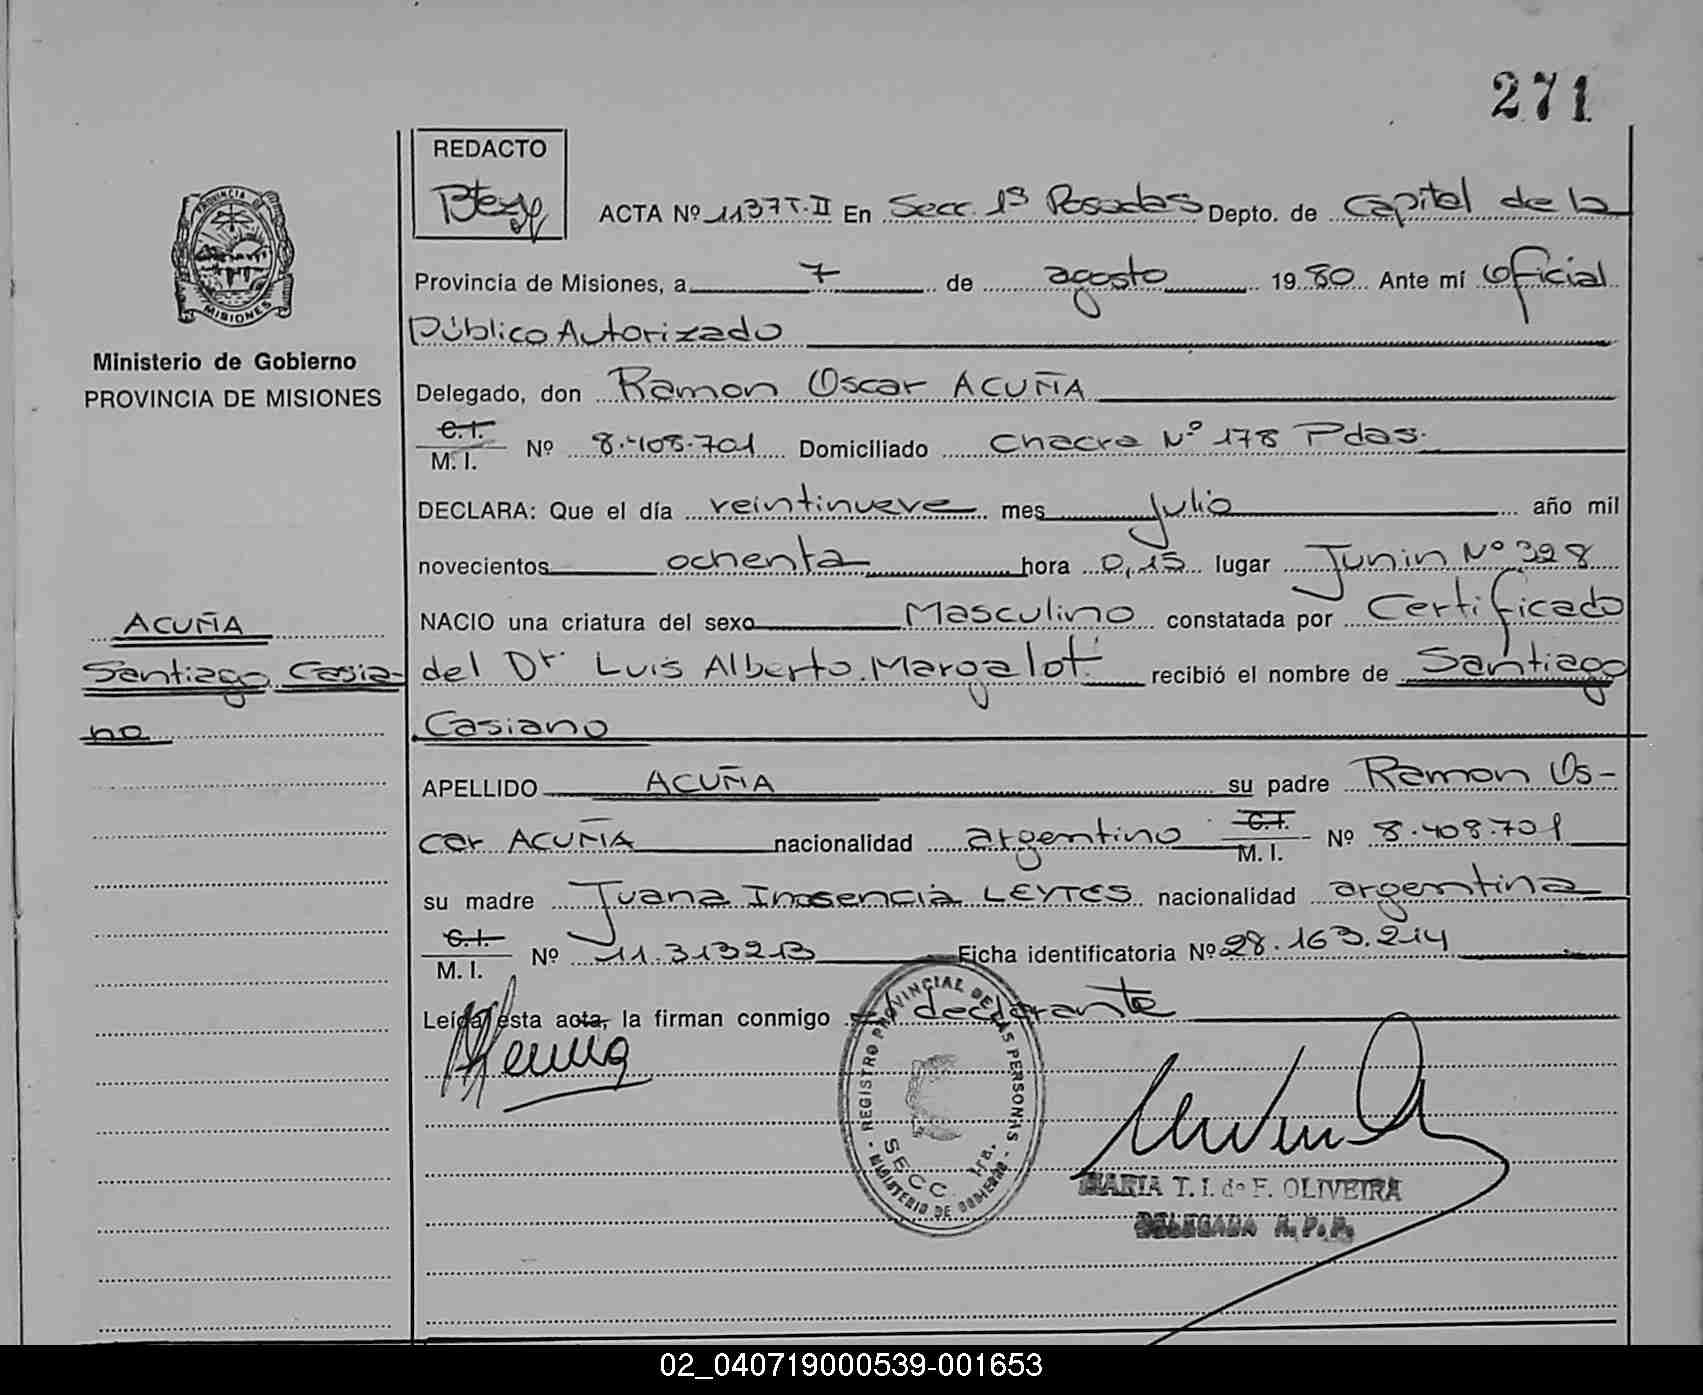 271
REDACTO
ACTA Nº 1137 T. II En Secc. 1ª Posadas Depto. de Capital de la
Provincia de Misiones, a 7 de agosto 19 80 Ante mí Oficial
Público Autorizado
Ministerio de Gobierno
PROVINCIA DE MISIONES
Delegado, don Ramon Oscar ACUÑA
C.I.
M. I. Nº 8.408.701 Domiciliado Chacra Nº 178 Pdas.
DECLARA: Que el día veintinueve mes Julio año mil
novecientos ochenta hora 0,15 lugar Junin Nº 328
NACIO una criatura del sexo Masculino constatada por Certificado
ACUÑA
Santiago Casia-
no
del Dr. Luis Alberto Margalot recibió el nombre de Santiago
Casiano
APELLIDO ACUÑA su padre Ramon Os-
car ACUÑA nacionalidad argentino C.I. M. I. Nº 8.408.701
su madre Juana Inosencia LEYTES nacionalidad argentina
C.I.
M. I. Nº 11.313213 Ficha identificatoria Nº 28.163.214
Leída esta acta, la firman conmigo el declarante
REGISTRO PROVINCIAL DE LAS PERSONAS
SECC. 1ra.
MINISTERIO DE GOBIERNO
MARIA T. I. de F. OLIVEIRA
DELEGADA R. P. P.
PROVINCIA DE
MISIONES
02_040719000539-001653